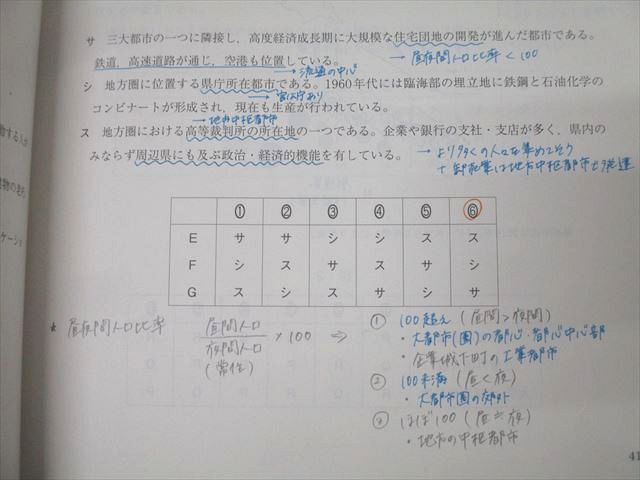 サ 三大都市の一つに隣接し，高度経済成長期に大規模な住宅団地の開発が進んだ都市である。
鉄道，高速道路が通じ，空港も位置している。
→ 昼夜間人口比率 < 100
→ 流通の中心
シ 地方圏に位置する県庁所在都市である。1960年代には臨海部の埋立地に鉄鋼と石油化学の
→ 官公庁あり
コンビナートが形成され，現在も生産が行われている。
→ 地方中枢都市
ス 地方圏における高等裁判所の所在地の一つである。企業や銀行の支社・支店が多く，県内の
みならず周辺県にも及ぶ政治・経済的機能を有している。
→ より多くの人口を集めてそう
+ 卸売業は地方中枢都市で発達
① ② ③ ④ ⑤ ⑥
E サ サ シ シ ス ス
F シ ス サ ス サ シ
G ス シ ス サ シ サ
* 昼夜間人口比率
昼間人口
夜間人口
(常住)
×100 ⇒
① 100超え (昼間>夜間)
・大都市(圏)の都心・都心中心部
・企業城下町の工業都市
② 100未満 (昼<夜)
・大都市圏の郊外
③ ほぼ100 (昼≒夜)
・地方の中枢都市
41